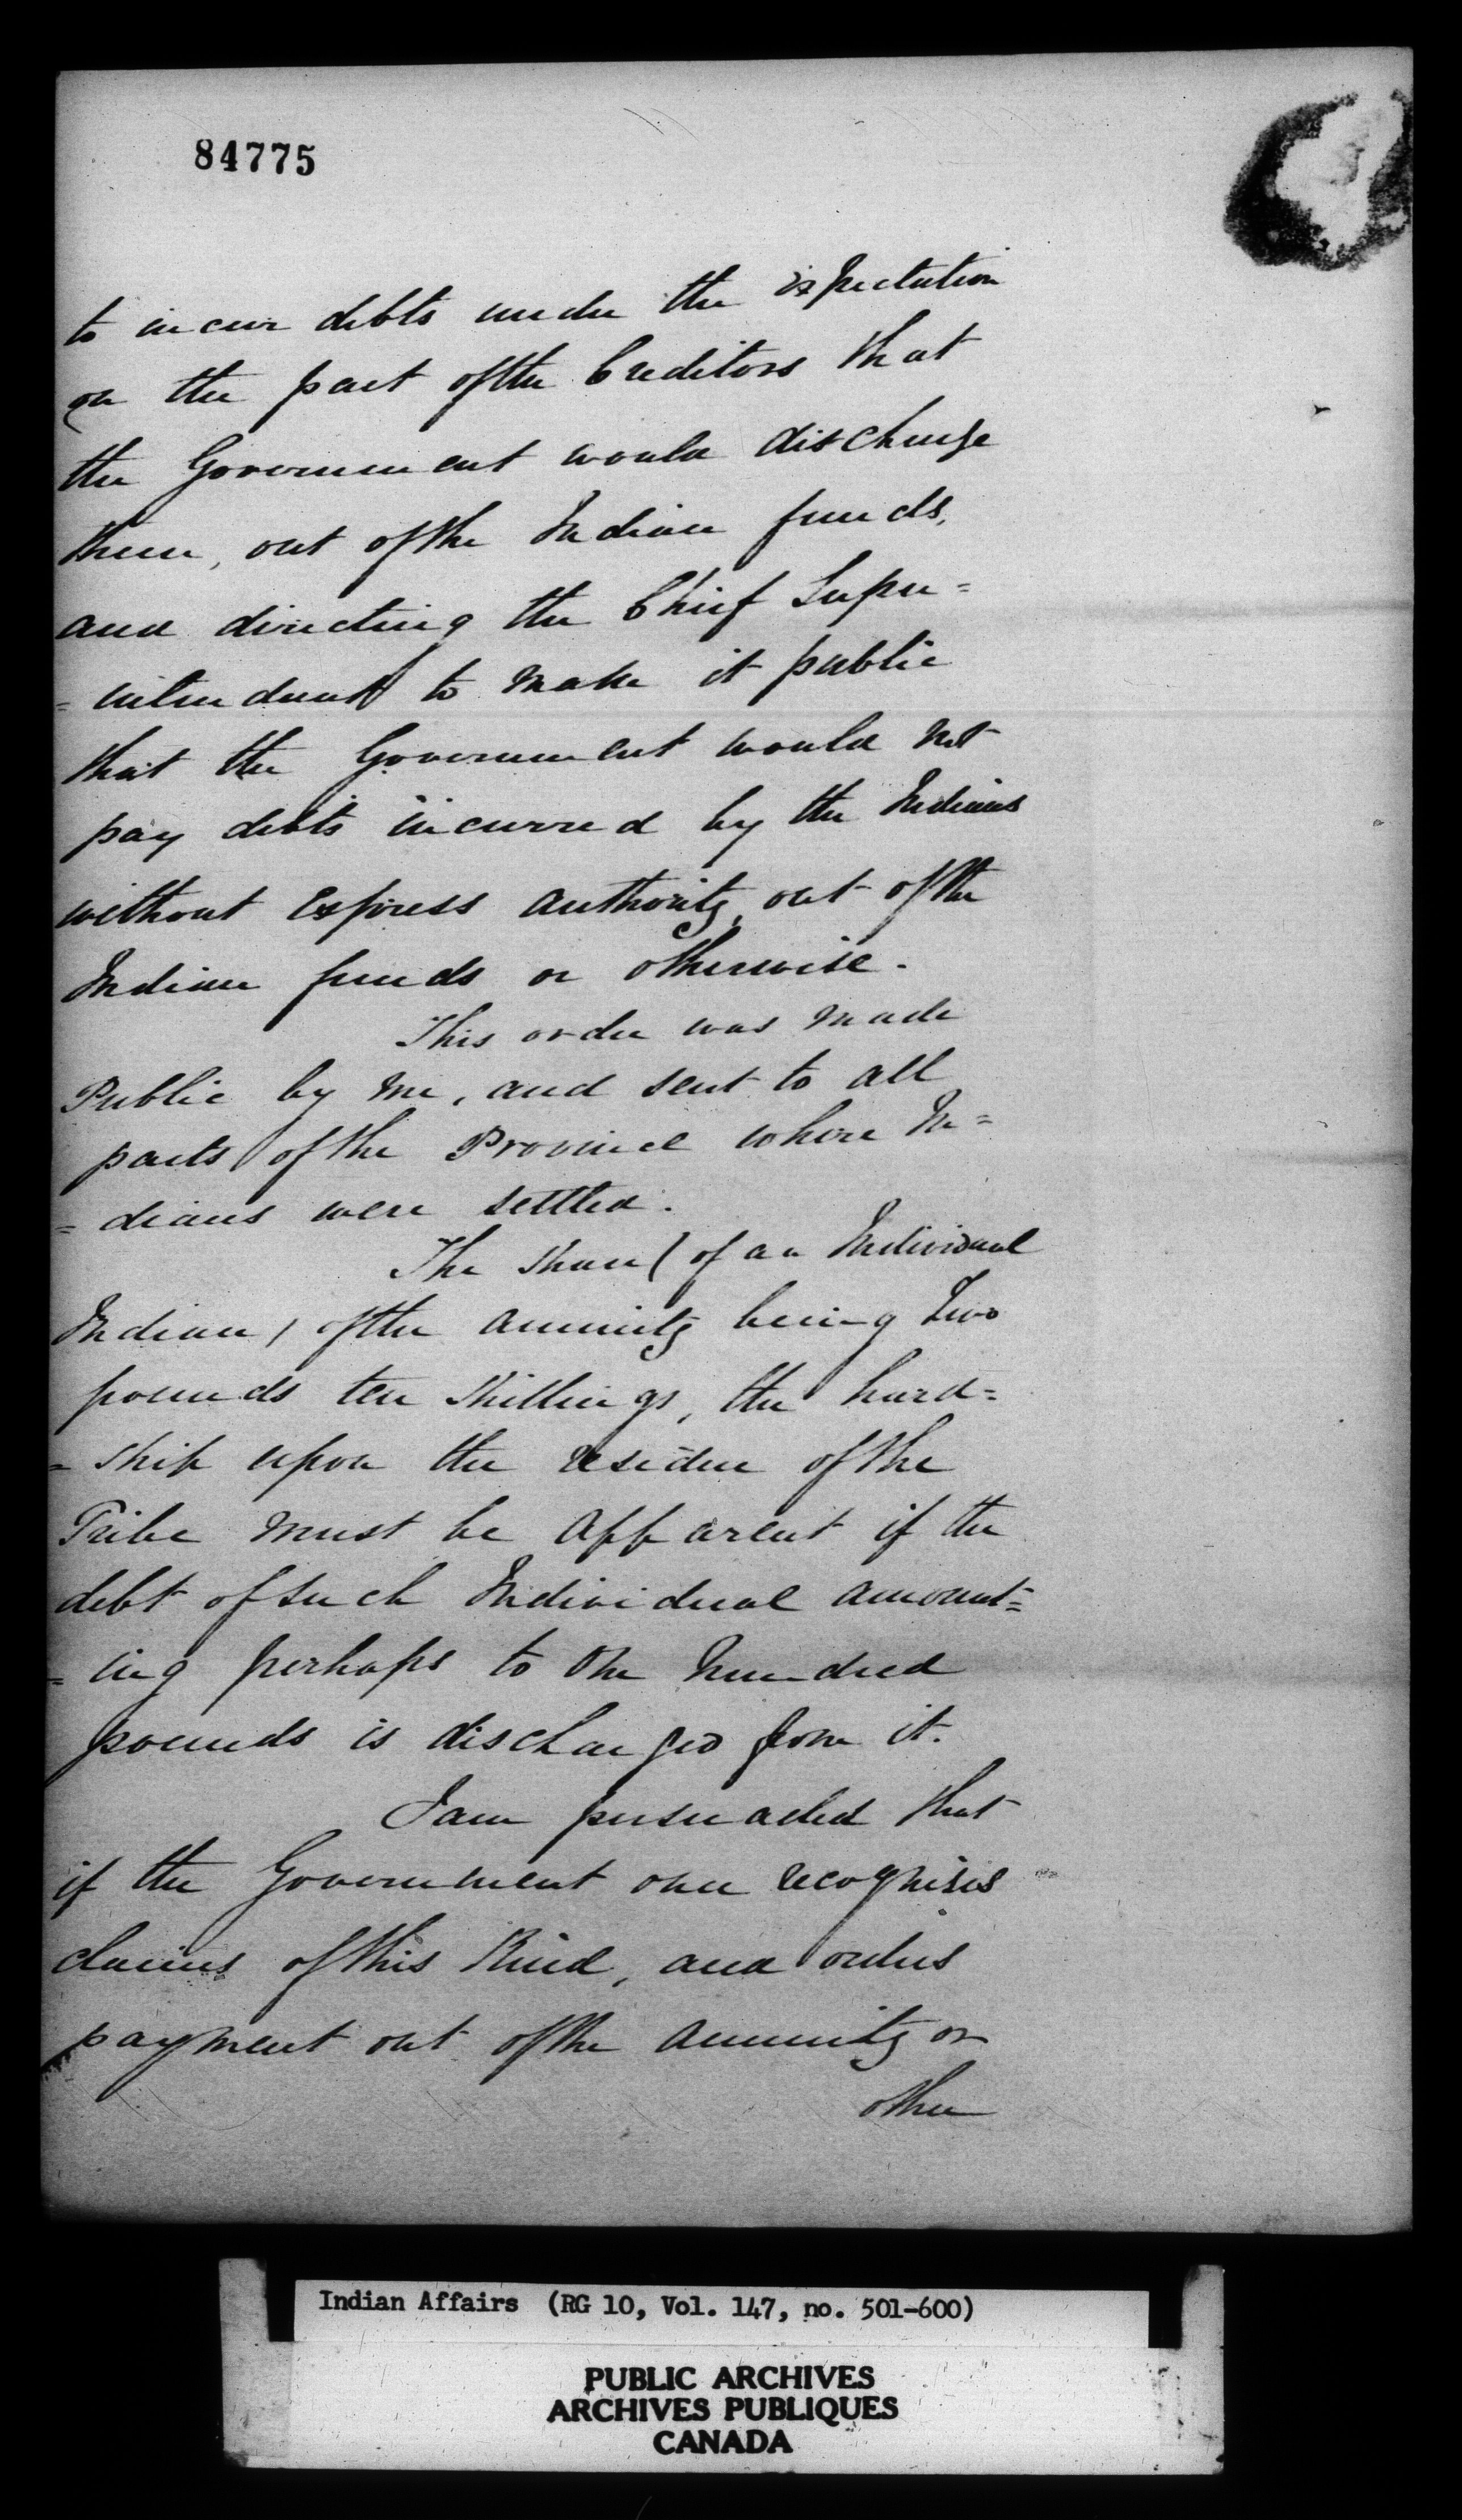 84775
to incur debts under the expectation
on the part of the Creditors that
the Government would discharge
them, out of the Indian funds,
and directing the Chief Super=
=intendent to make it public
that the Government would not
pay debts incurred by the Indians
without express authority, out of the
Indian funds or otherwise.
This order was made
Public by me, and sent to all
parts of the Province where In=
=dians were settled.
The share (of an Individual
Indian) of the annuity being Two
pounds ten shillings, the hard=
=ship upon the residue of the
Tribe must be apparent if the
debt of such Individual amount=
=ing perhaps to one hundred
pounds is discharged from it.
I am persuaded that
if the Government once recognises
claims of this kind, and orders
payment out of the annuity or
other
Indian Affairs (RG 10, Vol. 147, no. 501-600)
PUBLIC ARCHIVES
ARCHIVES PUBLIQUES
CANADA